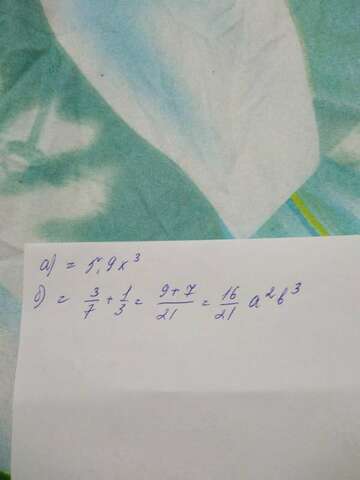 а) = 5,9x³
б) = 3/7 + 1/3 = 9+7/21 = 16/21 a²b³